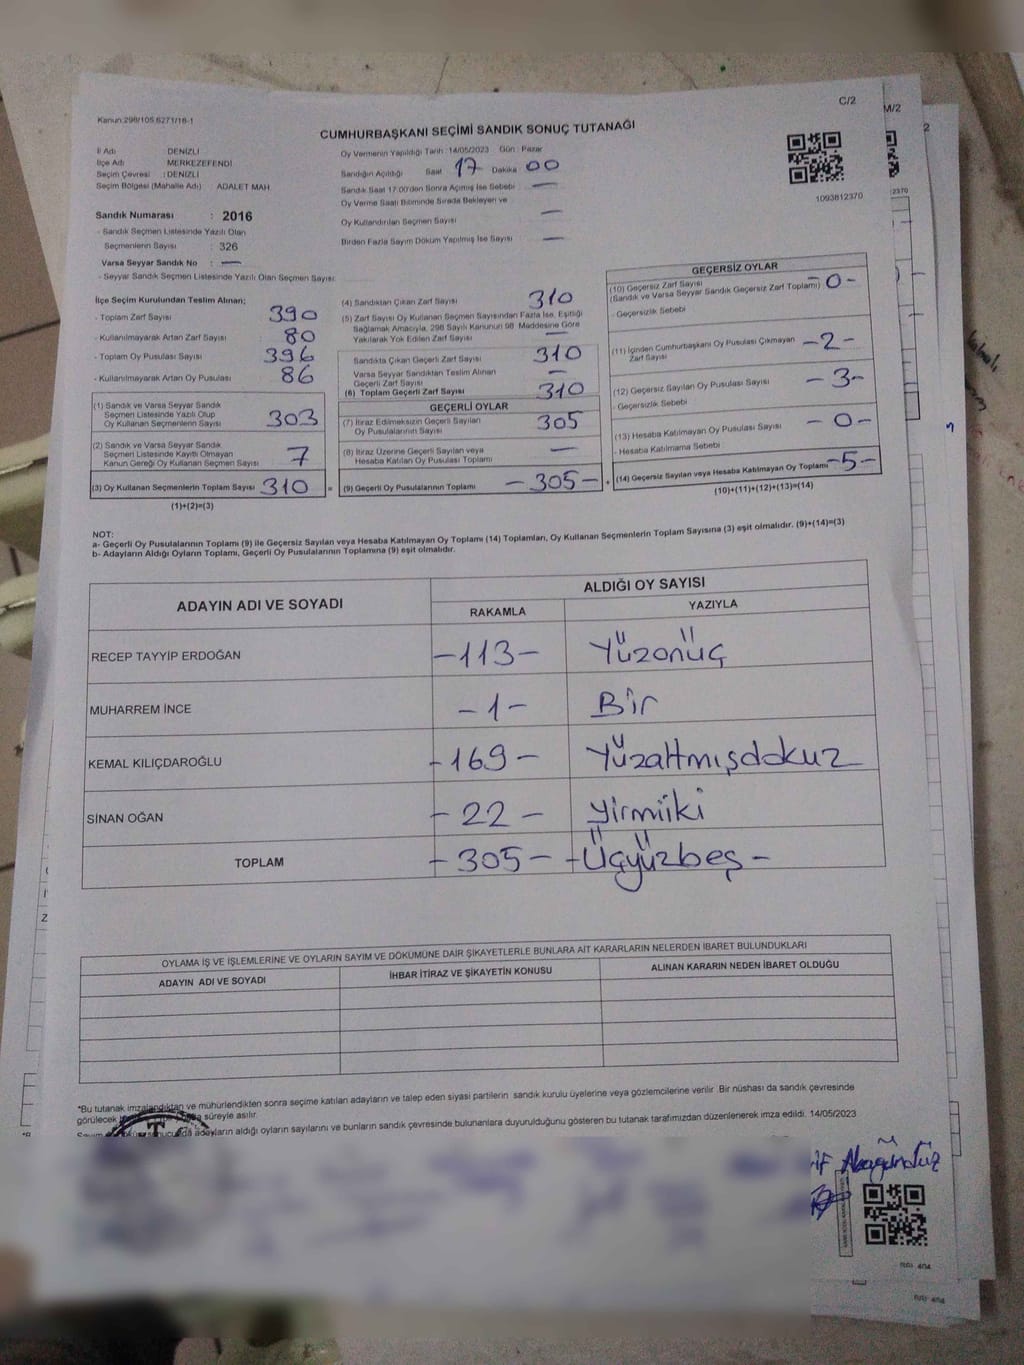 C/2
M/2
Kanun:298/105 6271/18-1
CUMHURBAŞKANI SEÇİMİ SANDIK SONUÇ TUTANAĞI
İl Adı DENİZLİ
İlçe Adı MERKEZEFENDİ
Seçim Çevresi : DENİZLİ
Seçim Bölgesi (Mahalle Adı) : ADALET MAH.
Sandık Numarası : 2016
- Sandık Seçmen Listesinde Yazılı Olan
Seçmenlerin Sayısı : 326
Varsa Seyyar Sandık No : —
- Seyyar Sandık Seçmen Listesinde Yazılı Olan Seçmen Sayısı:
Oy Vermenin Yapıldığı Tarih :14/05/2023 Gün : Pazar
Sandığın Açıldığı Saat 17 Dakika 00
Sandık Saat 17:00'den Sonra Açılmış İse Sebebi —
Oy Verme Saati Bitiminde Sırada Bekleyen ve
Oy Kullandırılan Seçmen Sayısı —
Birden Fazla Sayım Döküm Yapılmış İse Sayısı —
1093812370
2370
İlçe Seçim Kurulundan Teslim Alınan;
- Toplam Zarf Sayısı 390
- Kullanılmayarak Artan Zarf Sayısı 80
- Toplam Oy Pusulası Sayısı 396
- Kullanılmayarak Artan Oy Pusulası 86
(1) Sandık ve Varsa Seyyar Sandık
Seçmen Listesinde Yazılı Olup
Oy Kullanan Seçmenlerin Sayısı 303
(2) Sandık ve Varsa Seyyar Sandık
Seçmen Listesinde Kayıtlı Olmayan
Kanun Gereği Oy Kullanan Seçmen Sayısı 7
(3) Oy Kullanan Seçmenlerin Toplam Sayısı 310 =
(1)+(2)=(3)
(4) Sandıktan Çıkan Zarf Sayısı 310
(5) Zarf Sayısı Oy Kullanan Seçmen Sayısından Fazla İse, Eşitliği
Sağlamak Amacıyla, 298 Sayılı Kanunun 98. Maddesine Göre
Yakılarak Yok Edilen Zarf Sayısı —
Sandıkta Çıkan Geçerli Zarf Sayısı 310
Varsa Seyyar Sandıktan Teslim Alınan
Geçerli Zarf Sayısı —
(6) Toplam Geçerli Zarf Sayısı 310
GEÇERLİ OYLAR
(7) İtiraz Edilmeksizin Geçerli Sayılan
Oy Pusulalarının Sayısı 305
(8) İtiraz Üzerine Geçerli Sayılan veya
Hesaba Katılan Oy Pusulası Toplamı —
(9) Geçerli Oy Pusulalarının Toplamı - 305 - +
GEÇERSİZ OYLAR
(10) Geçersiz Zarf Sayısı
(Sandık ve Varsa Seyyar Sandık Geçersiz Zarf Toplamı) - 0 -
- Geçersizlik Sebebi
(11) İçinden Cumhurbaşkanı Oy Pusulası Çıkmayan
Zarf Sayısı - 2 -
(12) Geçersiz Sayılan Oy Pusulası Sayısı - 3 -
- Geçersizlik Sebebi
(13) Hesaba Katılmayan Oy Pusulası Sayısı - 0 -
- Hesaba Katılmama Sebebi
(14) Geçersiz Sayılan veya Hesaba Katılmayan Oy Toplamı - 5 -
(10)+(11)+(12)+(13)=(14)
NOT:
a- Geçerli Oy Pusulalarının Toplamı (9) ile Geçersiz Sayılan veya Hesaba Katılmayan Oy Toplamı (14) Toplamları, Oy Kullanan Seçmenlerin Toplam Sayısına (3) eşit olmalıdır. (9)+(14)=(3)
b- Adayların Aldığı Oyların Toplamı, Geçerli Oy Pusulalarının Toplamına (9) eşit olmalıdır.
ADAYIN ADI VE SOYADI ALDIĞI OY SAYISI
RAKAMLA YAZIYLA
RECEP TAYYİP ERDOĞAN - 113 - Yüzonüç
MUHARREM İNCE - 1 - Bir
KEMAL KILIÇDAROĞLU - 169 - Yüzaltmışdokuz
SİNAN OĞAN - 22 - Yirmiiki
TOPLAM - 305 - - Üçyüzbeş -
OYLAMA İŞ VE İŞLEMLERİNE VE OYLARIN SAYIM VE DÖKÜMÜNE DAİR ŞİKAYETLERLE BUNLARA AİT KARARLARIN NELERDEN İBARET BULUNDUKLARI
ADAYIN ADI VE SOYADI İHBAR İTİRAZ VE ŞİKAYETİN KONUSU ALINAN KARARIN NEDEN İBARET OLDUĞU
*Bu tutanak imzalandıktan ve mühürlendikten sonra seçime katılan adayların ve talep eden siyasi partilerin sandık kurulu üyelerine veya gözlemcilerine verilir .Bir nüshası da sandık çevresinde
görülecek süreyle asılır.
Sayım adayların aldığı oyların sayılarını ve bunların sandık çevresinde bulunanlara duyurulduğunu gösteren bu tutanak tarafımızdan düzenlenerek imza edildi. 14/05/2023